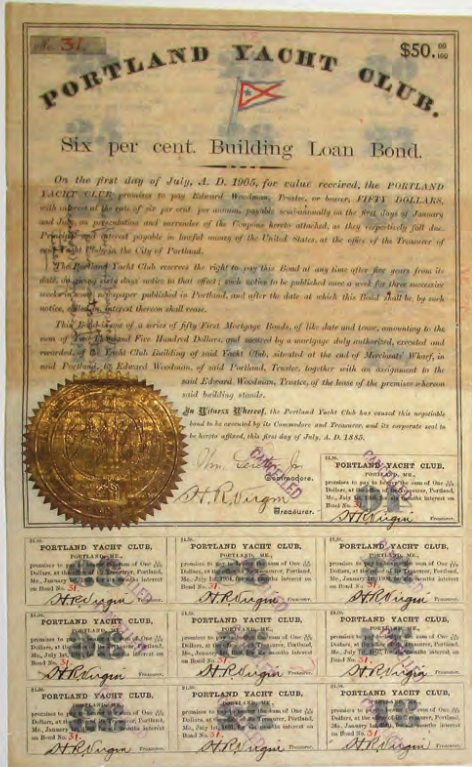 31.
$50.00/100
PORTLAND YACHT CLUB.
Six per cent. Building Loan Bond.
On the first day of July, A. D. 1905, for value received, the PORTLAND
YACHT CLUB promises to pay Edward Woodman, Trustee, or bearer, FIFTY DOLLARS,
with interest at the rate of six per cent. per annum, payable semi-annually on the first days of January
and July, on presentation and surrender of the Coupons hereto attached, as they respectively fall due.
Principal and interest payable in lawful money of the United States, at the office of the Treasurer of
Yacht Club, in the City of Portland.
The Portland Yacht Club reserves the right to pay this Bond at any time after five years from its
date, on giving sixty days notice to that effect; such notice to be published once a week for three successive
weeks in some newspaper published in Portland, and after the date at which this Bond shall be, by such
notice, interest thereon shall cease.
This Bond is one of a series of fifty First Mortgage Bonds, of like date and tenor, amounting to the
sum of Two Thousand Five Hundred Dollars, and secured by a mortgage duly authorized, executed and
recorded, of the Yacht Club Building of said Yacht Club, situated at the end of Merchants' Wharf, in
said Portland, to Edward Woodman, of said Portland, Trustee, together with an assignment to the
said Edward Woodman, Trustee, of the lease of the premises whereon
said building stands.
In Witness Whereof, the Portland Yacht Club has caused this negotiable
bond to be executed by its Commodore and Treasurer, and its corporate seal to
be hereto affixed, this first day of July, A. D. 1885.
CANCELLED
Commodore.
H.R. Virgin
Treasurer.
PORTLAND YACHT CLUB,
PORTLAND, ME.,
promises to pay to sum of One
Dollars, at the Treasurer, Portland,
Me., July 1st, months interest
on Bond No. 31.
H.R. Virgin Treasurer.
PORTLAND YACHT CLUB,
PORTLAND, ME.,
promises to pay sum of One
Dollars, at the Treasurer, Portland,
Me., January months interest
on Bond No. 31.
H.R. Virgin Treasurer.
PORTLAND YACHT CLUB,
PORTLAND, ME.,
promises to pay sum of One
Dollars, at the Treasurer, Portland,
Me., July 1st, 1904, months interest on
Bond No. 31.
H.R. Virgin Treasurer.
PORTLAND YACHT CLUB,
PORTLAND, ME.,
promises to pay sum of One
Dollars, at the Treasurer, Portland,
Me., January months interest
on Bond No. 31.
H.R. Virgin Treasurer.
PORTLAND YACHT CLUB,
PORTLAND, ME.,
promises to pay sum of One
Dollars, at the Treasurer, Portland,
Me., July 1st, months interest on
Bond No. 31.
H.R. Virgin Treasurer.
PORTLAND YACHT CLUB,
PORTLAND, ME.,
promises to pay sum of One
Dollars, at the Treasurer, Portland,
Me., January months interest
on Bond No. 31.
H.R. Virgin Treasurer.
PORTLAND YACHT CLUB,
PORTLAND, ME.,
promises to pay sum of One
Dollars, at the Treasurer, Portland,
Me., July months interest on
Bond No. 31.
H.R. Virgin Treasurer.
PORTLAND YACHT CLUB,
PORTLAND, ME.,
promises to pay sum of One
Dollars, at the Treasurer, Portland,
Me., January months interest
on Bond No. 31.
H.R. Virgin Treasurer.
PORTLAND YACHT CLUB,
PORTLAND, ME.,
promises to pay sum of One
Dollars, at the Treasurer, Portland,
Me., July 1st, months interest on
Bond No. 31.
H.R. Virgin Treasurer.
PORTLAND YACHT CLUB,
PORTLAND, ME.,
promises to pay sum of One
Dollars, at the Treasurer, Portland,
Me., January months interest
on Bond No. 31.
H.R. Virgin Treasurer.